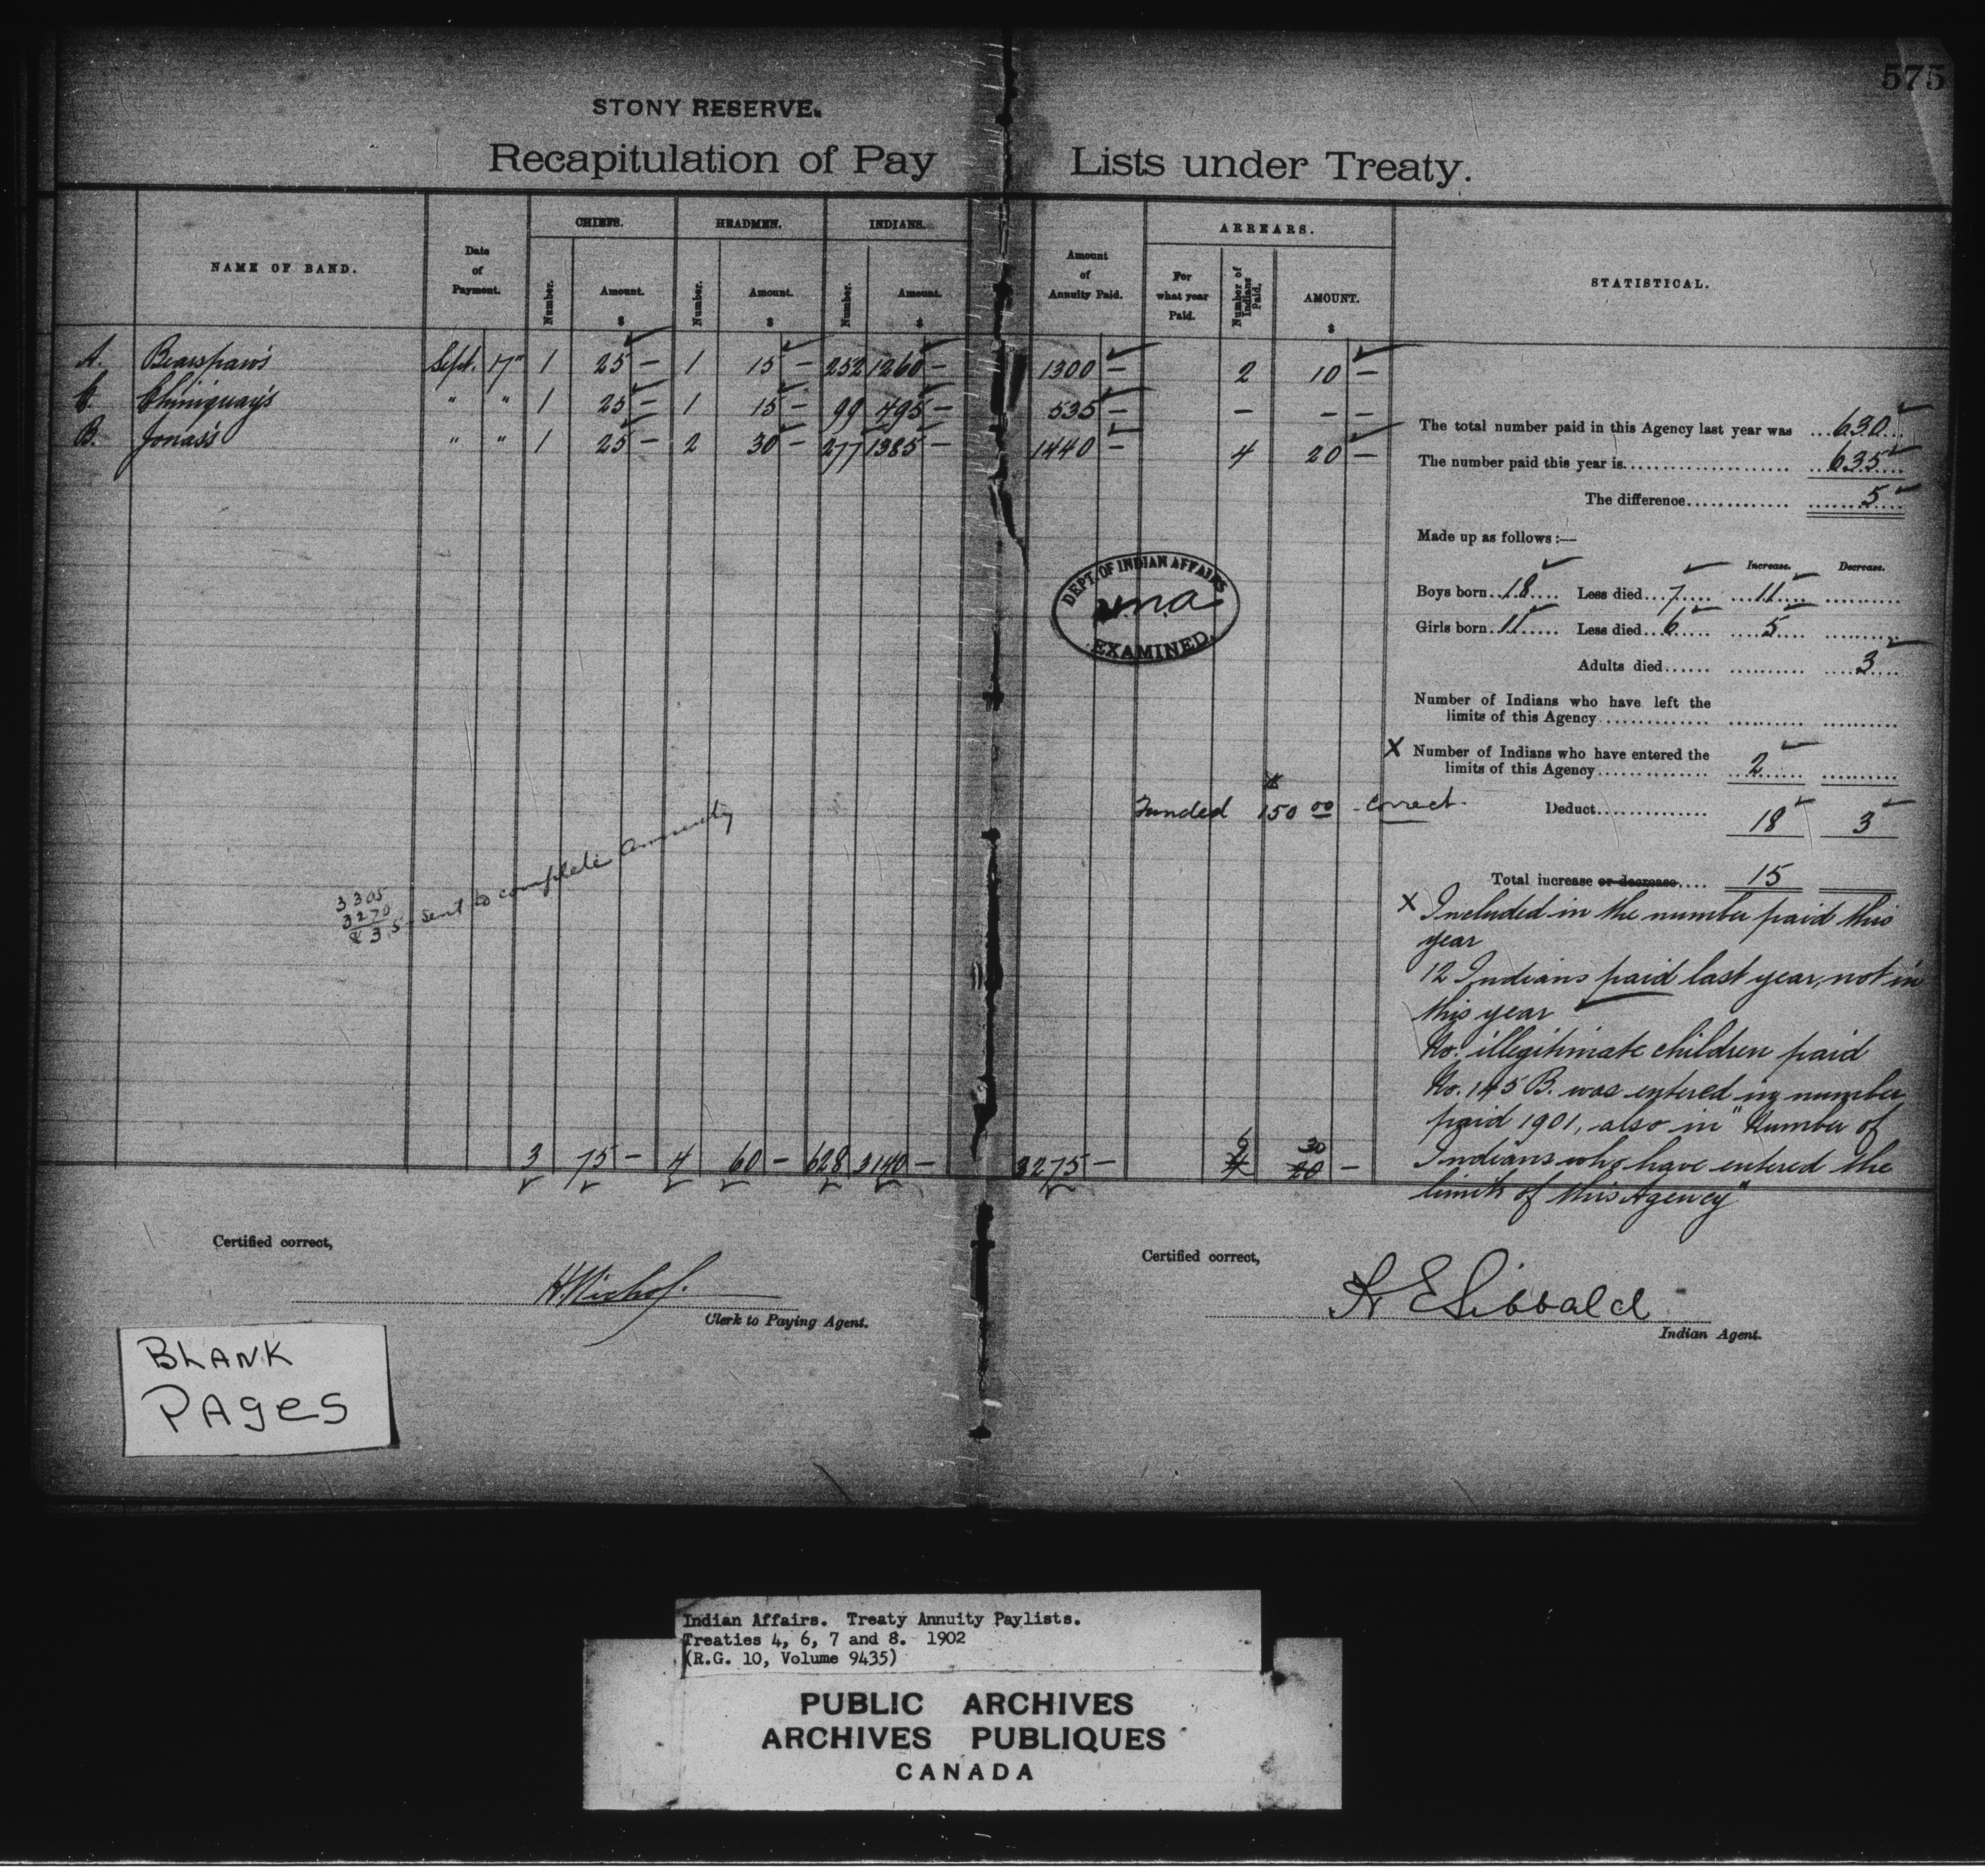 575
STONY RESERVE.
Recapitulation of Pay Lists under Treaty.
NAME OF BAND. Date of Payment. CHIEFS. HEADMEN. INDIANS. Amount of Annuity Paid. ARREARS. STATISTICAL.
Number. Amount. $ Number. Amount. $ Number. Amount. $ For what year Paid. Number of Indians Paid. AMOUNT. $
A. Bearspaw's Sept. 17" 1 25 — 1 15 — 252 1260 — 1300 — 2 10 —
C. Chiniquay's " " 1 25 — 1 15 — 99 495 — 535 — — — —
B. Jonas's " " 1 25 — 2 30 — 277 1385 — 1440 — 4 20 —
The total number paid in this Agency last year was ...630...
The number paid this year is...... 635
The difference...... 5
Made up as follows :—
Increase. Decrease.
Boys born..18.... Less died...7.... ....11....
Girls born..11.... Less died...6.... ....5....
Adults died...... 3
Number of Indians who have left the
limits of this Agency......
X Number of Indians who have entered the
limits of this Agency...... 2
Deduct...... 18 3
Total increase or decrease.... 15
X Included in the number paid this
year
12 Indians paid last year, not in
this year
No. illegitimate children paid
No. 145 B. was entered in number
paid 1901, also in "Number of
Indians who have entered the
limits of this Agency"
DEPT. OF INDIAN AFFAIRS
EXAMINED.
Funded 150 00 correct.
3305
3270
35 Sent to complete annuity
3 75 — 4 60 — 628 3140 — 3275 — 4 6 20 30 —
Certified correct,
Clerk to Paying Agent.
Certified correct,
H E Sibbald
Indian Agent.
BLANK
PAGES
Indian Affairs. Treaty Annuity Paylists.
Treaties 4, 6, 7 and 8. 1902
(R.G. 10, Volume 9435)
PUBLIC ARCHIVES
ARCHIVES PUBLIQUES
CANADA